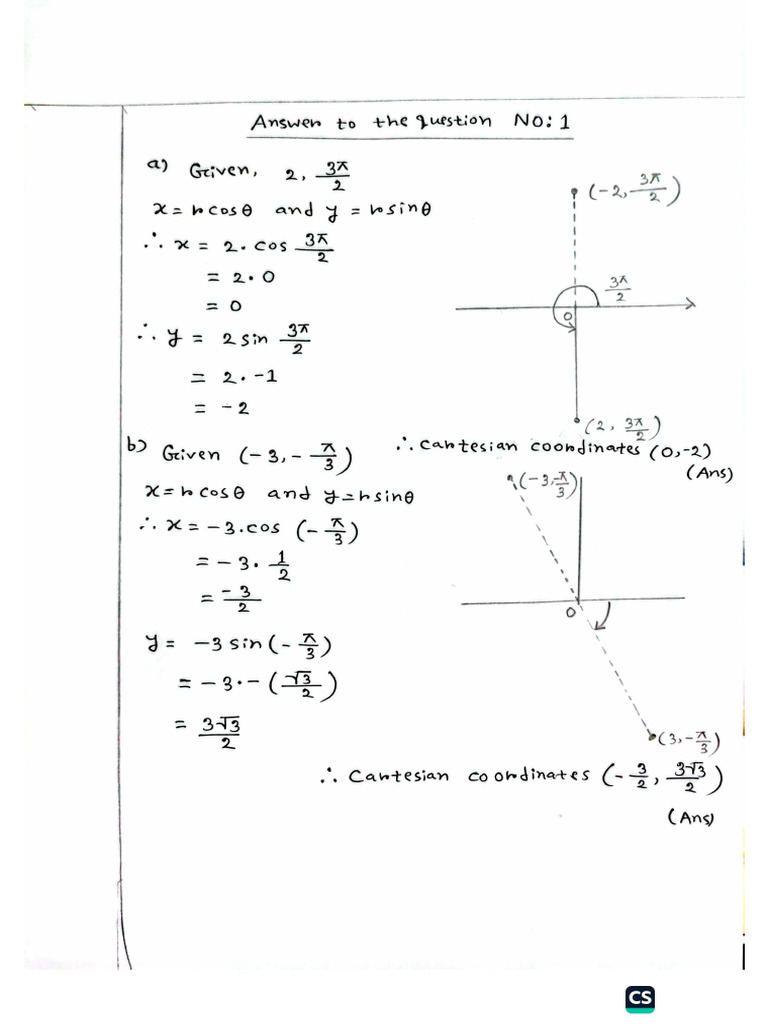 Answer to the question NO: 1
a) Given, 2, 3π/2
x = r cosθ and y = r sinθ
∴ x = 2. cos 3π/2
= 2 • 0
= 0
∴ y = 2 sin 3π/2
= 2 • -1
= -2
(-2, 3π/2)
3π/2
0
(2, 3π/2)
∴ Cartesian coordinates (0,-2)
(Ans)
b) Given (-3, -π/3)
x = r cosθ and y = r sinθ
∴ x = -3. cos (-π/3)
= -3 • 1/2
= -3/2
y = -3 sin(-π/3)
= -3 • -(√3/2)
= 3√3/2
(-3, -π/3)
0
(3, -π/3)
∴ Cartesian coordinates (-3/2, 3√3/2)
(Ans)
CS